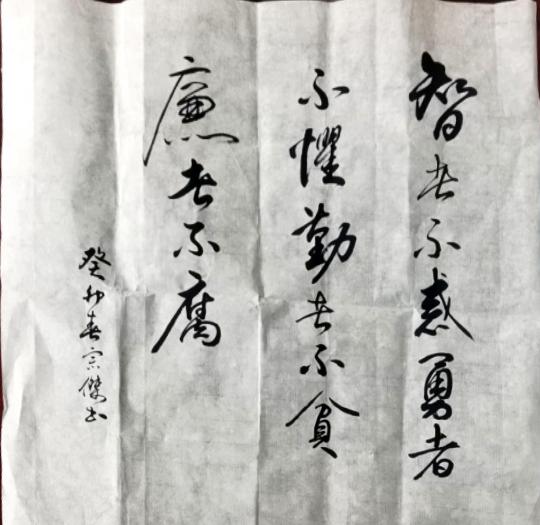 智者不惑勇者
不懼勤者不貧
廉者不腐
癸卯春宗傑书